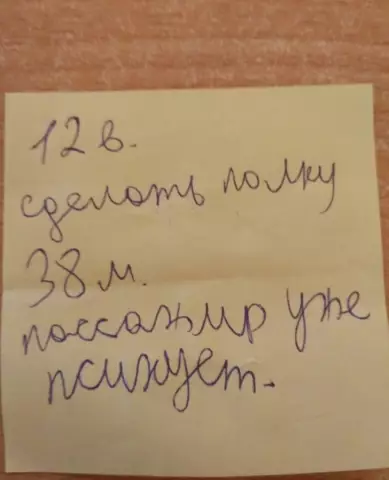 12 в.
сделать полку
38 м.
пассажир уже
психует.